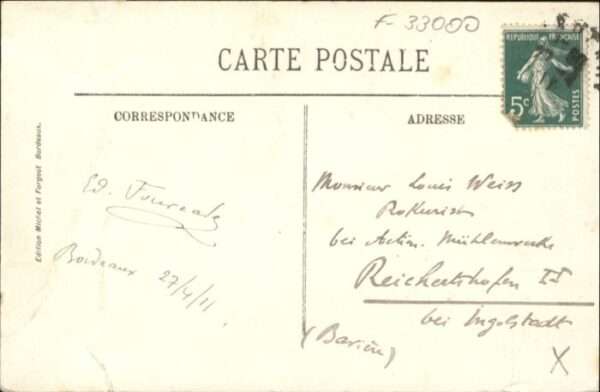 F-33000
CARTE POSTALE
REPUBLIQUE FRANÇAISE
5c
POSTES
CORRESPONDANCE
ADRESSE
Edition Michel et Forgeot Bordeaux.
Ed.
Bordeaux 27/4/11
Monsieur Louis Weiss
Prokurist
bei Actien Mühlenwerke
Reichertshofen
bei Ingolstadt
(Bavière)
X